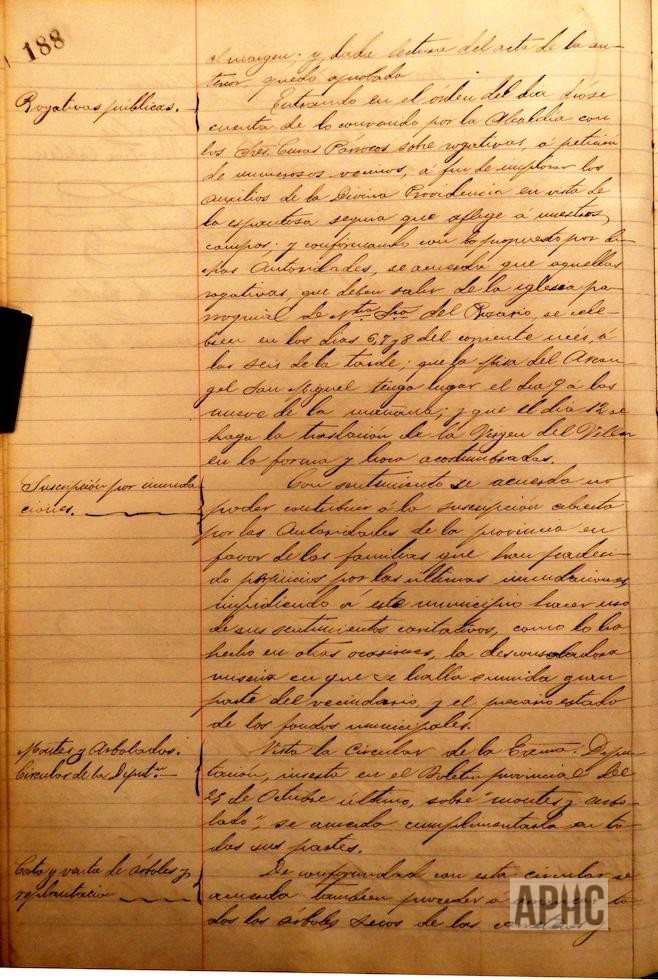 188
al margen y dada lectura del acta de la an-
terior, quedó aprobada
Rogativas públicas.
Entrando en el órden del dia dióse
cuenta de lo convenido por la Alcaldia con
los Sres. Curas Párrocos sobre rogativas, á petición
de numerosos vecinos, á fin de implorar los
auxilios de la Divina Providencia en vista de
la espantosa sequia que aflige á nuestros
campos; y conformando con lo propuesto por di-
chas Autoridades, se acuerda que aquellas
rogativas, que deben salir de la iglesia pa-
rroquial de Ntra. Sra. del Rosario, se cele-
bren en los dias 6, 7 y 8 del corriente més, á
las seis de la tarde; que la Misa del Arcan-
gel San Miguel tenga lugar el dia 9 á las
nueve de la mañana; y que el dia 12 se
haga la traslación de la Virgen del Villar
en la forma y hora acostumbradas.
Suscripción por inunda-
ciones.
Con sentimiento se acuerda no
poder contribuir á la suscripción abierta
por las Autoridades de la provincia en
favor de las familias que han padeci-
do perjuicios por las últimas inundaciones
impidiendo á este municipio hacer uso
de sus sentimientos caritativos, como lo ha
hecho en otras ocasiones, la desconsoladora
miseria en que se halla sumida gran
parte del vecindario, y el precario estado
de los fondos municipales.
Montes y Arbolados.
Circular de la Diput.on
Vista la Circular de la Excma. Dipu-
tacion, inserta en el Boletin provincial del
25 de Octubre último, sobre "montes y arbo-
lado", se acuerda cumplimentarla en to-
das sus partes.
Corta y venta de árboles y
replantacion
De conformidad con esta circular se
acuerda tambien proceder á arrancar to-
dos los árboles secos de las carreteras y
APHC